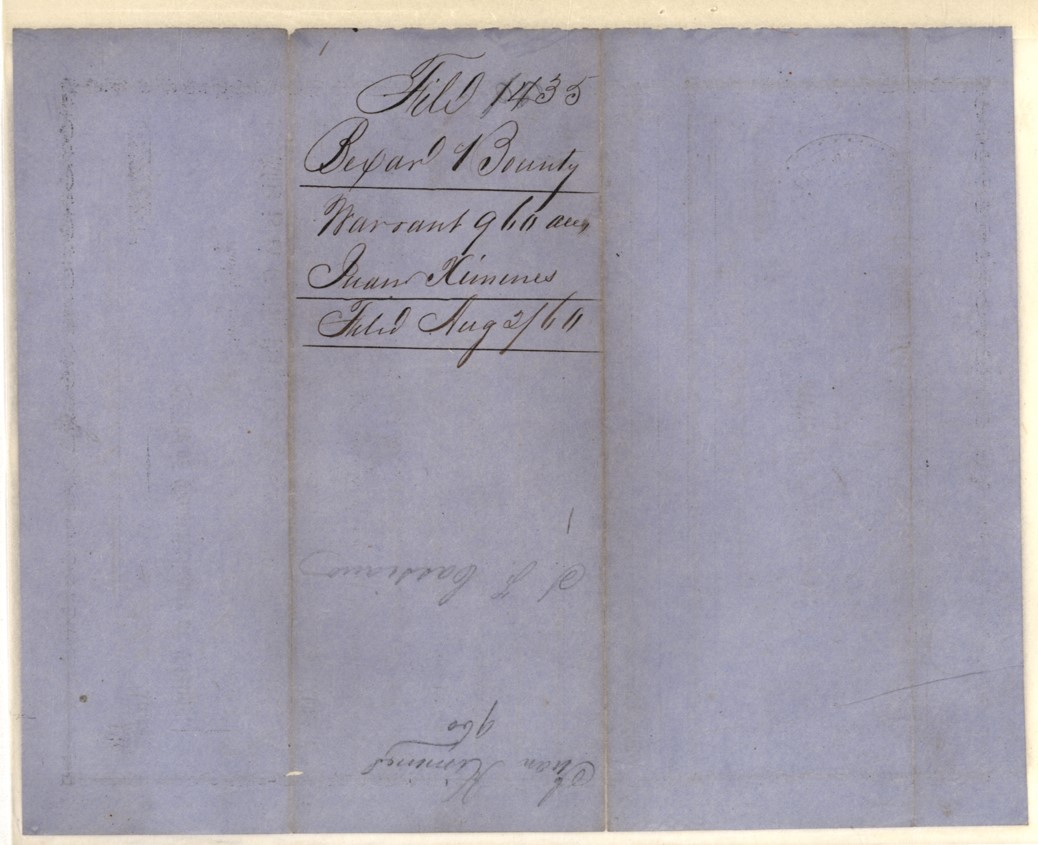 Fild 1435
Bexar 1 Bounty
Warrant 960 acres
Juan Ximenes
Filed Aug 2/60
S. F. Cassiano
Juan Ximines
960